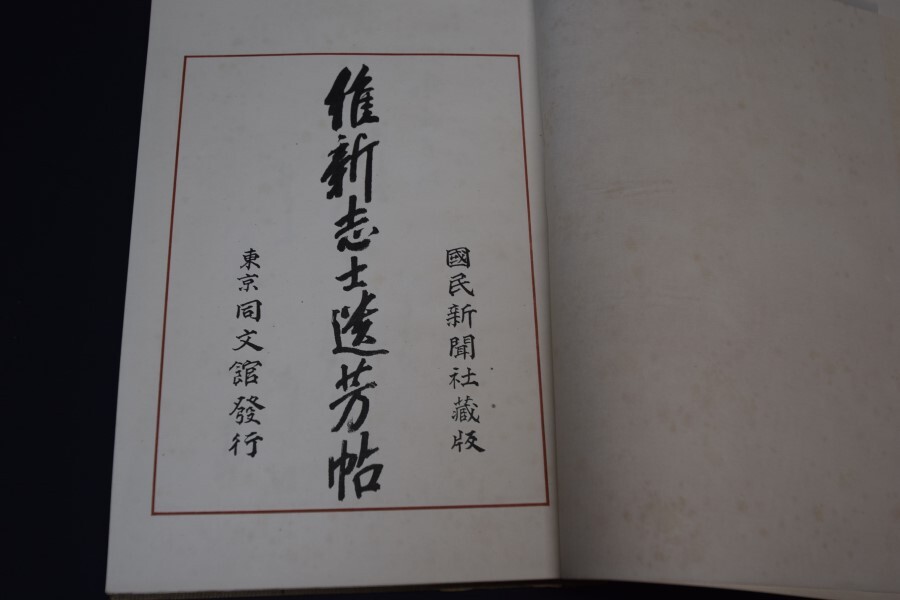 國民新聞社藏版
維新志士遺芳帖
東京同文館發行